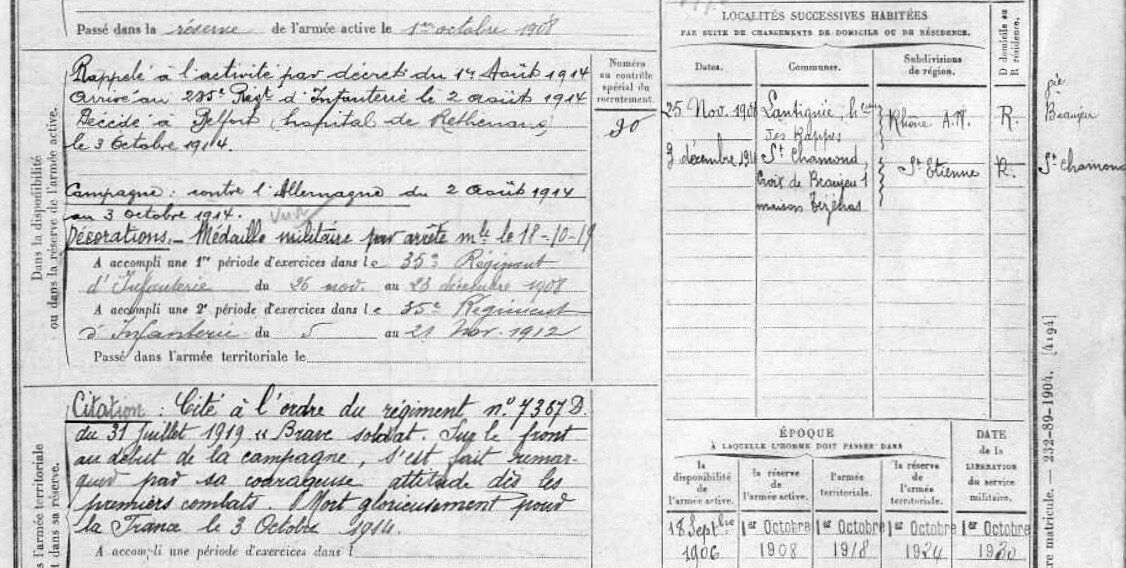 Passé dans la réserve de l'armée active le 1er octobre 1908
Dans la disponibilité
ou dans la réserve de l'armée active.
Rappelé à l'activité par décret du 1er Août 1914
Arrivé au 235e Régt d'Infanterie le 2 août 1914
Décédé à Belfort (hopital de Rethenans)
le 3 Octobre 1914.
Campagne : contre l'Allemagne du 2 août 1914
au 3 octobre 1914.
Décorations. _ Médaille militaire par arrêté mle le 18-10-19
A accompli une 1re période d'exercices dans le 35e Régiment
d'Infanterie du 26 nov. au 23 décembre 1908
A accompli une 2e période d'exercices dans le 35e Régiment
d'Infanterie du 5 au 21 Nov. 1912
Passé dans l'armée territoriale le
Numéro
au contrôle
spécial du
recrutement.
90
Citation : Cité à l'ordre du régiment n° 7357 D.
du 31 Juillet 1919 " Brave soldat. Sur le front
au début de la campagne, s'est fait remar-
quer par sa courageuse attitude dès les
premiers combats. Mort glorieusement pour
la France le 3 Octobre 1914.
A accompli une période d'exercices dans l
s l'armée territoriale
t dans sa réserve.
LOCALITÉS SUCCESSIVES HABITÉES
PAR SUITE DE CHANGEMENTS DE DOMICILE OU DE RÉSIDENCE.
Dates.
Communes.
Subdivisions
de région.
D domicile ou
R résidence.
25 Nov. 1906 Lantignié, Rhône A.R. R. Beaujeu
Les Rappes
3 décembre 191 St Chamond, St Etienne R. St Chamond
Croix de Beaujeu 1
maison
ÉPOQUE
À LAQUELLE L'HOMME DOIT PASSER DANS
la
disponibilité
de
l'armée active.
la réserve
de
l'armée active.
l'armée
territoriale.
la réserve
de
l'armée
territoriale.
DATE
de la
LIBÉRATION
du service
militaire.
18 Septbre 1er Octobre 1er Octobre 1er Octobre 1er Octobre
1906 1908 1918 1924 1930
re matricule. — 232-89-1904. [4194]